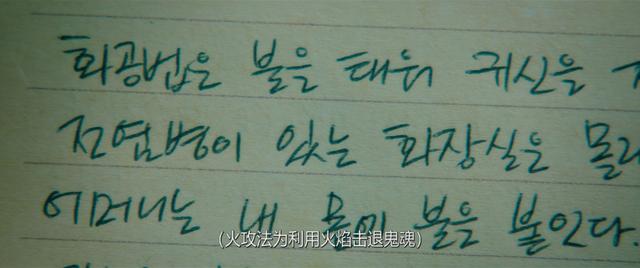 화공법은 불을 태워 귀신을
전염병이 있는 화장실은 몰라
어머니는 내 몸에 불을 붙인다.
(火攻法为利用火焰击退鬼魂)